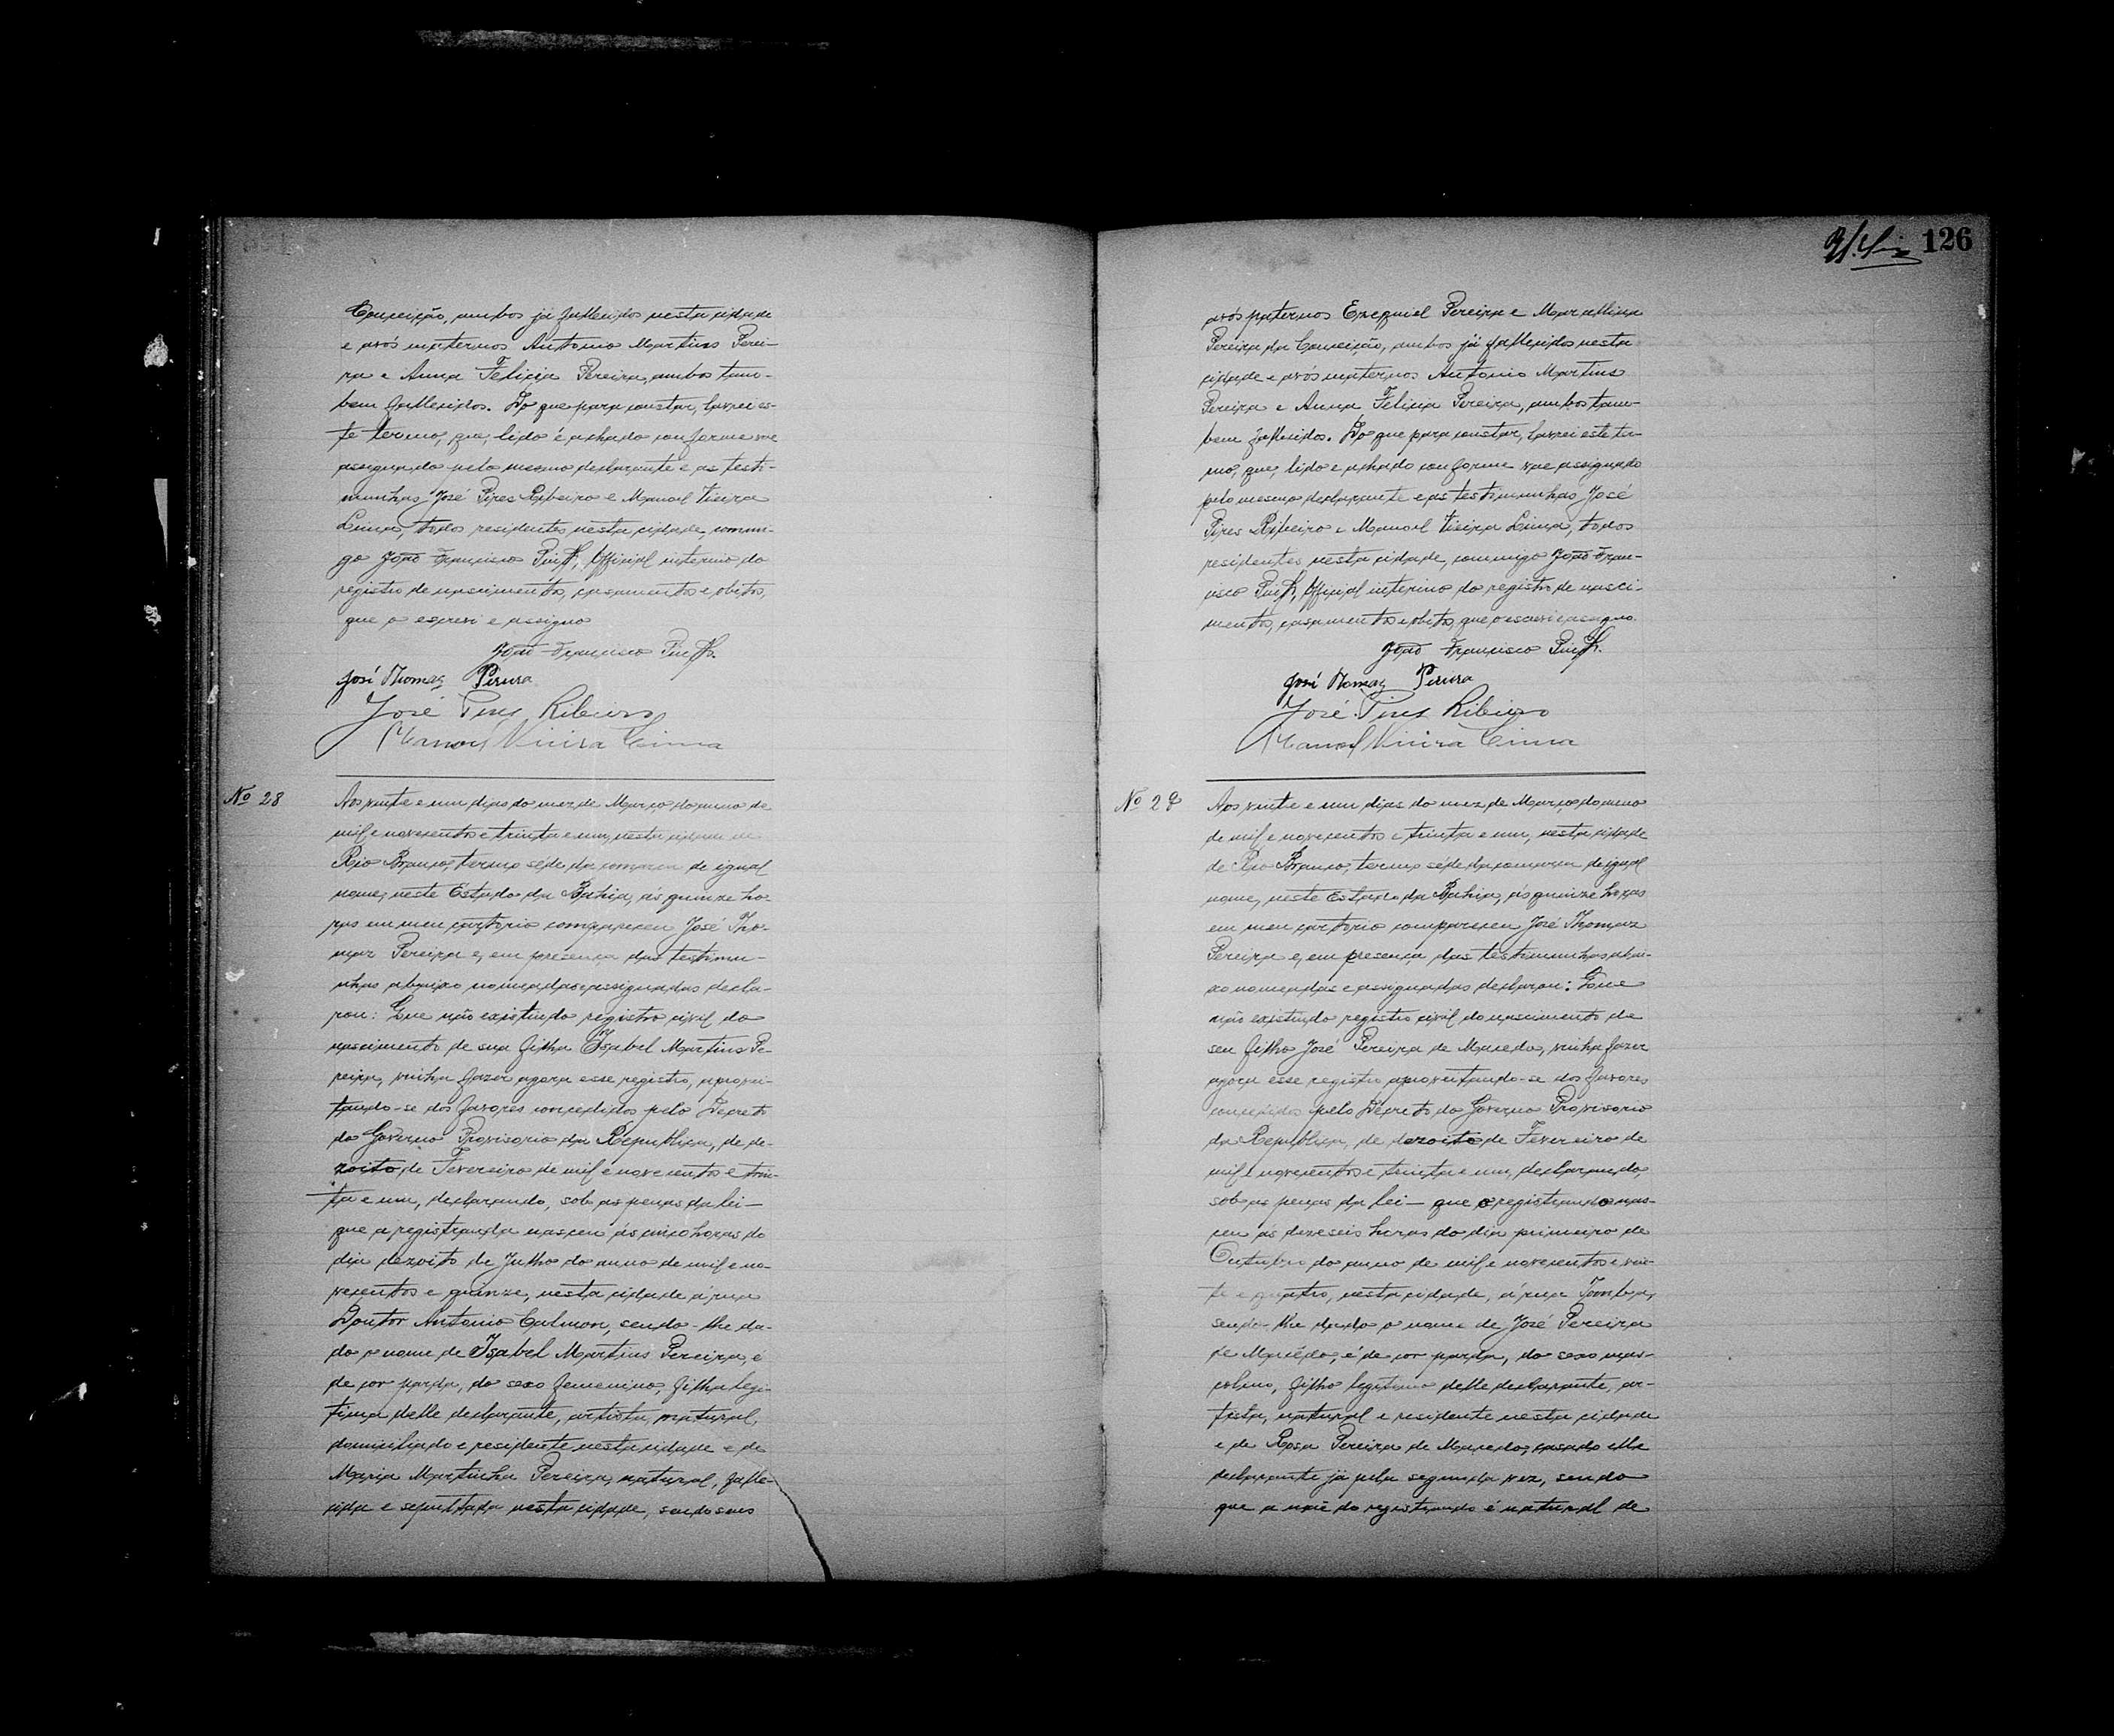 Conceição, ambos já fallecidos nesta cidade
e avós maternos Antonio Martins Perei-
ra e Anna Felicia Pereira, ambos tam-
bem fallecidos. Do que para constar, lavrei es-
te termo, que, lido é achado conforme vae
assignado pelo mesmo declarante e as teste-
munhas José Pires Ribeiro e Manoel Vieira
Lima, todos residentes nesta cidade, commi-
go João Francisco, Official interino do
registro de nascimentos, casamentos e obitos,
que o escrevi e assigno
João Francisco
José Thomaz Pereira
José Pires Ribeiro
Manoel Vieira Lima
Nº 28
Aos vinte e um dias do mez de Março do anno de
mil e novecentos e trinta e um, nesta cidade de
Rio Branco, termo séde da comarca de igual
nome, neste Estado da Bahia, ás quinze ho-
ras em meu cartorio compareceu José Tho-
maz Pereira e, em presença das testemu-
nhas abaixo nomeadas e assignadas decla-
rou: Que não existindo registro civil do
nascimento de sua filha Isabel Martins Pe-
reira, vinha fazer agora esse registro, aprovei-
tando-se dos favores concedidos pelo Decreto
do Governo Provisorio da Republica, de de-
zoito de Fevereiro de mil e novecentos e trin-
ta e um, declarando, sob as penas da lei—
que a registranda nasceu ás cinco horas do
dia dezoito de Julho do anno de mil e no-
vecentos e quinze, nesta cidade á rua
Doutor Antonio Calmon, sendo-lhe da-
do o nome de Isabel Martins Pereira, é
de cor parda, do sexo femenino, filha legi-
tima delle declarante, artista, natural,
domiciliado e residente nesta cidade e de
Maria Martinha Pereira, natural, falle-
cida e sepultada nesta cidade, sendo seus
126
avós paternos Ezequiel Pereira e Marcellina
Pereira da Conceição, ambos já fallecidos nesta
cidade e avós maternos Antonio Martins
Pereira e Anna Felicia Pereira, ambos tam-
bem fallecidos. Do que para constar, lavrei este ter-
mo, que, lido e achado conforme vae assignado
pelo mesmo declarante e as testemunhas José
Pires Ribeiro e Manoel Vieira Lima, todos
residentes nesta cidade, commigo João Fran-
cisco, Official interino do registro de nasci-
mentos, casamentos e obitos, que o escrevi e assigno.
João Francisco
José Thomaz Pereira
José Pires Ribeiro
Manoel Vieira Lima
Nº 29
Aos vinte e um dias do mez de Março do anno
de mil e novecentos e trinta e um, nesta cidade
de Rio Branco, termo séde da comarca de igual
nome, neste Estado da Bahia, ás quinze horas
em meu cartorio compareceu José Thomaz
Pereira e, em presença das testemunhas abai-
xo nomeadas e assignadas declarou: Que
não existindo registro civil do nascimento de
seu filho José Pereira de Macedo, vinha fazer
agora esse registro aproveitando-se dos favores
concedidos pelo Decreto do Governo Provisorio
da Republica, de dezoito de Fevereiro de
mil e novecentos e trinta e um, declarando,
sob as penas da lei— que o registrando nas-
ceu ás dezeseis horas do dia primeiro de
Outubro do anno de mil e novecentos e vin-
te e quatro, nesta cidade, á rua Tomba,
sendo-lhe dado o nome de José Pereira
de Macêdo, é de cor parda, do sexo mas-
colino, filho legitimo delle declarante, ar-
tista, natural e residente nesta cidade
e de Rosa Pereira de Macedo, casado elle
declarante já pela segunda vez, sendo
que a mãe do registrando é natural de